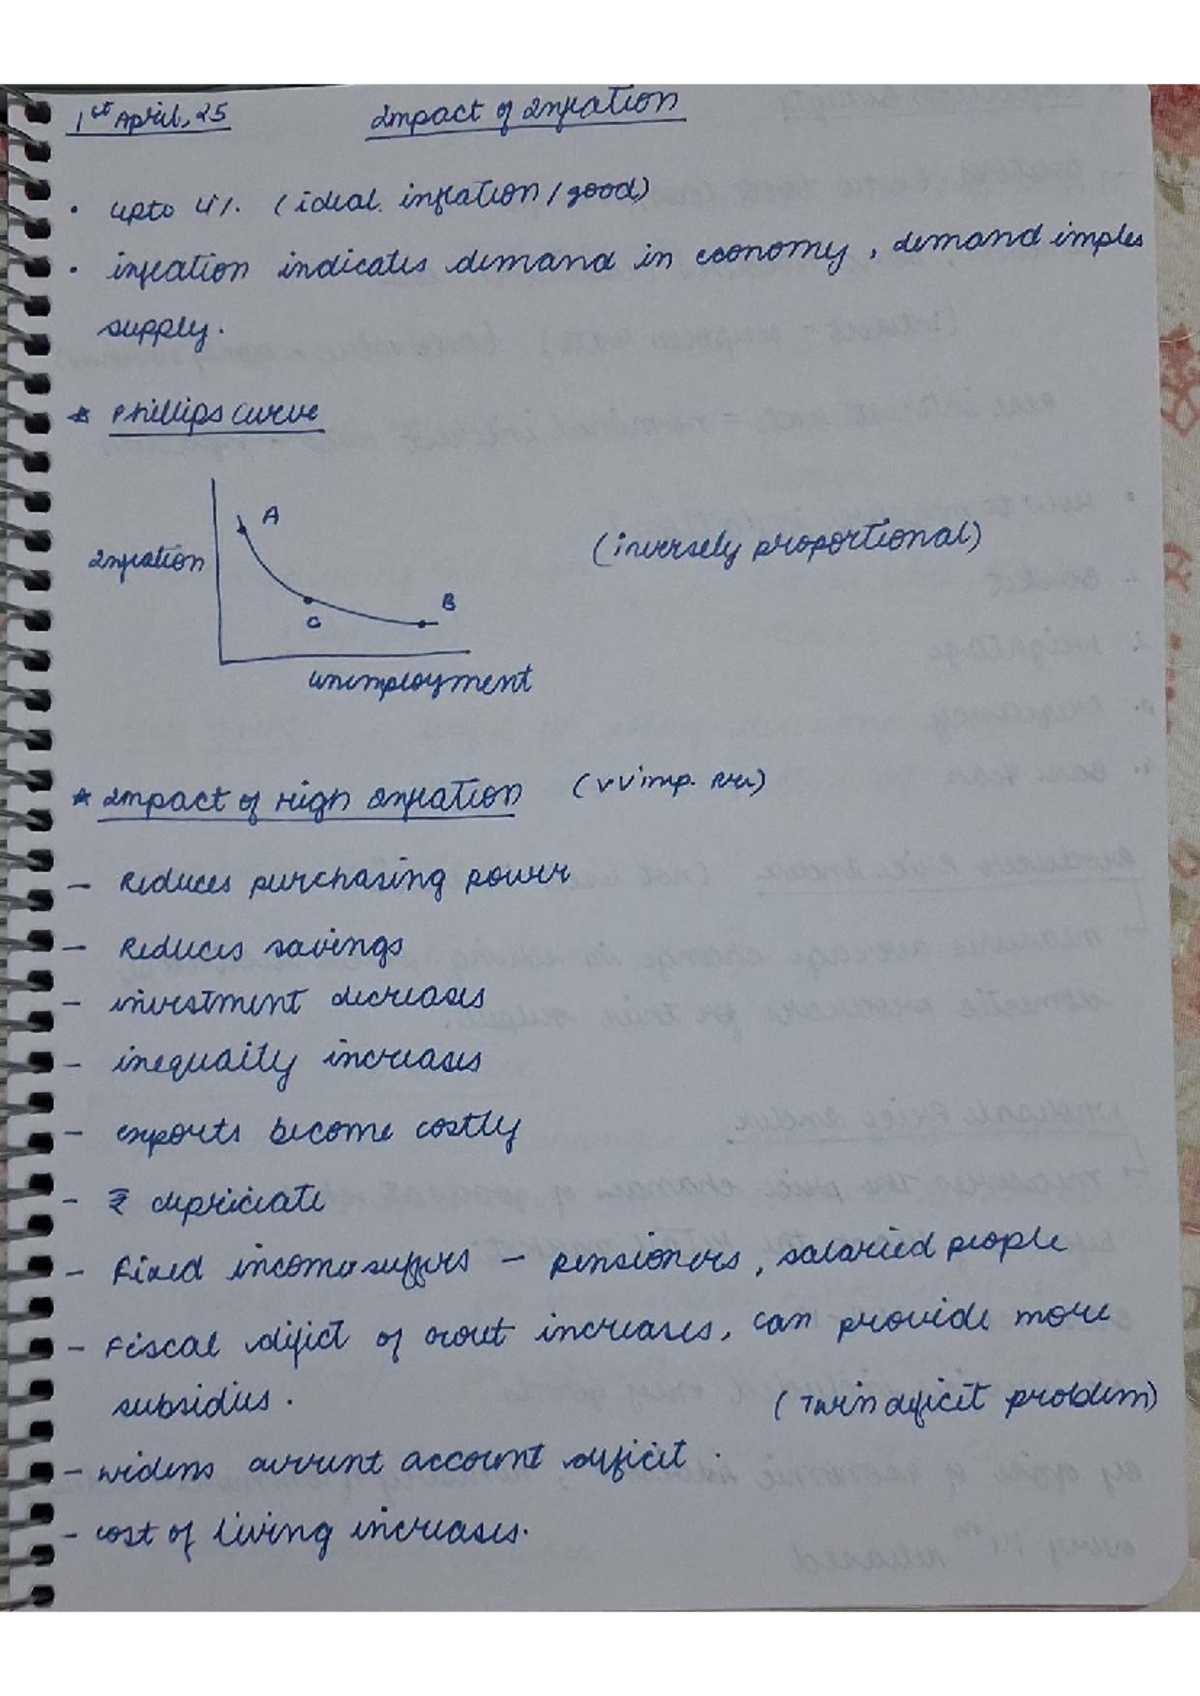 1st April, 25
Impact of Inflation
• upto 4%. (ideal inflation / good)
• inflation indicates demand in economy, demand imples
supply.
* Phillips curve
A
Inflation
(inversely proportional)
B
C
unemployment
* Impact of High Inflation (vvimp.
- Reduces purchasing power
- Reduces savings
- investment decreases
- inequality increases
- exports become costly
- ₹ depriciate
- Fixed income suffers - pensioners, salaried people
- Fiscal deficit of Govt increases, can provide more
subsidies.
(Twin deficit problem)
- widens current account deficit.
- cost of living increases.